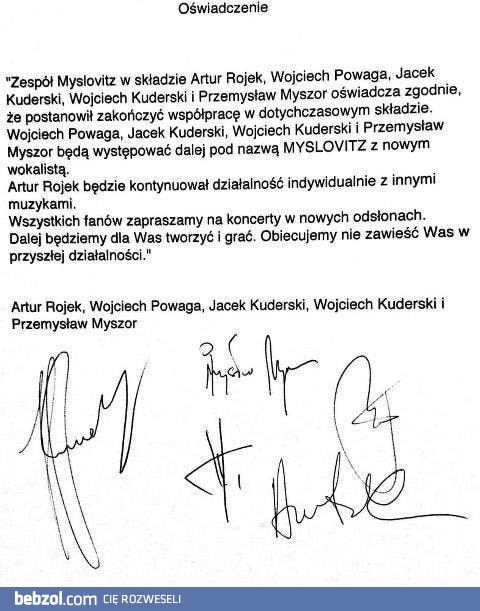 Oświadczenie
"Zespół Myslovitz w składzie Artur Rojek, Wojciech Powaga, Jacek
Kuderski, Wojciech Kuderski i Przemysław Myszor oświadcza zgodnie,
że postanowił zakończyć współpracę w dotychczasowym składzie.
Wojciech Powaga, Jacek Kuderski, Wojciech Kuderski i Przemysław
Myszor będą występować dalej pod nazwą MYSLOVITZ z nowym
wokalistą.
Artur Rojek będzie kontynuował działalność indywidualnie z innymi
muzykami.
Wszystkich fanów zapraszamy na koncerty w nowych odsłonach.
Dalej będziemy dla Was tworzyć i grać. Obiecujemy nie zawieść Was w
przyszłej działalności."
Artur Rojek, Wojciech Powaga, Jacek Kuderski, Wojciech Kuderski i
Przemysław Myszor
bebzol.com CIĘ ROZWESELI